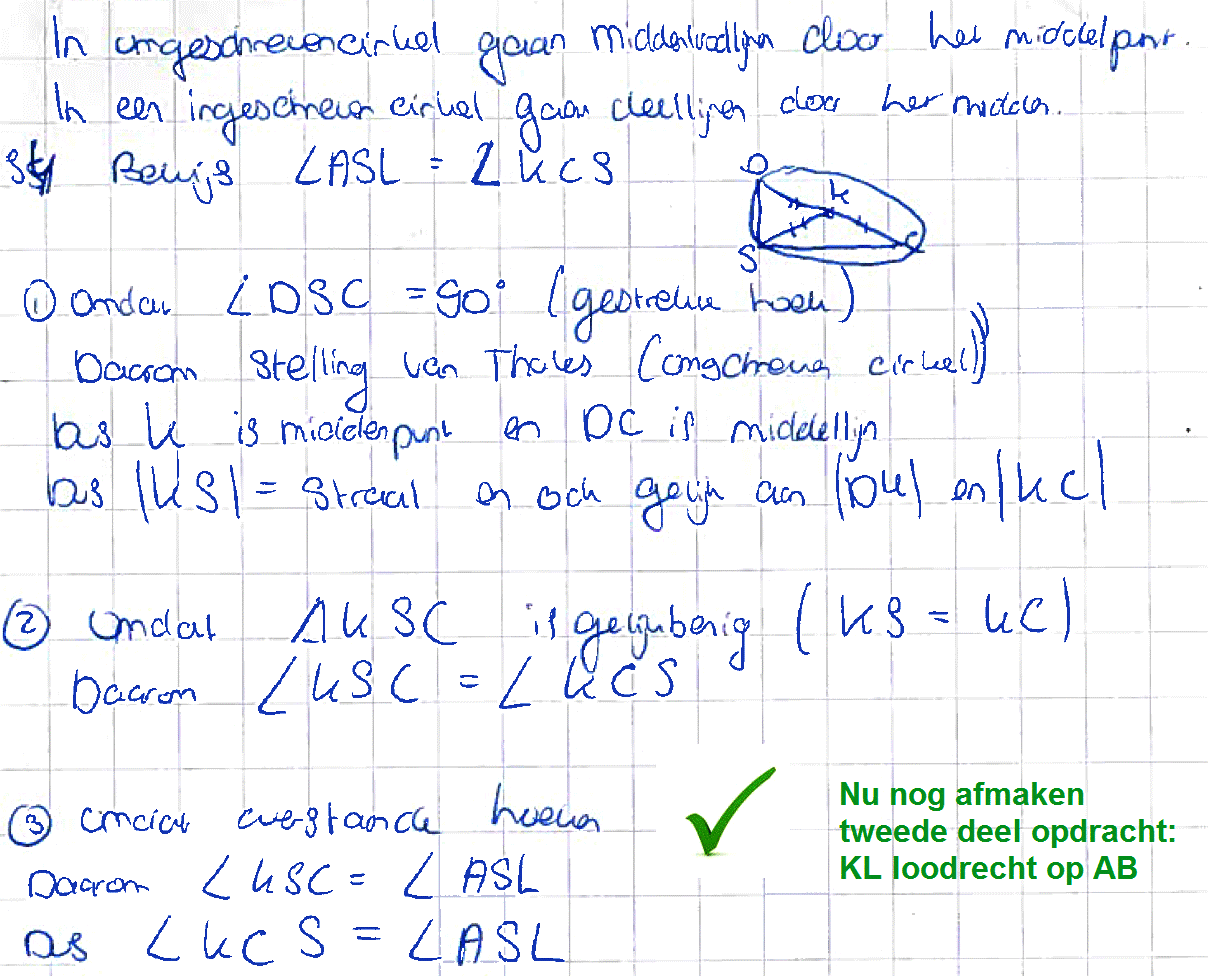 In omgeschrevencirkel gaan middelloodlijnen door het middelpunt.
In een ingeschreven cirkel gaan deellijnen door het midden.
Bewijs ∠ASL = ∠KCS
D
K
S
C
① Omdat ∠DSC = 90° (gestrekte hoek)
Daarom Stelling van Thales (omgschreven cirkel))
Dus K is middenpunt en DC is middellijn
Dus |KS| = Straal en ook gelijk aan |DK| en |KC|
② Omdat ΔKSC is gelijkbenig (KS = KC)
Daarom ∠KSC = ∠KCS
③ Omdat overstaande hoeken
Daarom ∠KSC = ∠ASL
Dus ∠KCS = ∠ASL
Nu nog afmaken
tweede deel opdracht:
KL loodrecht op AB